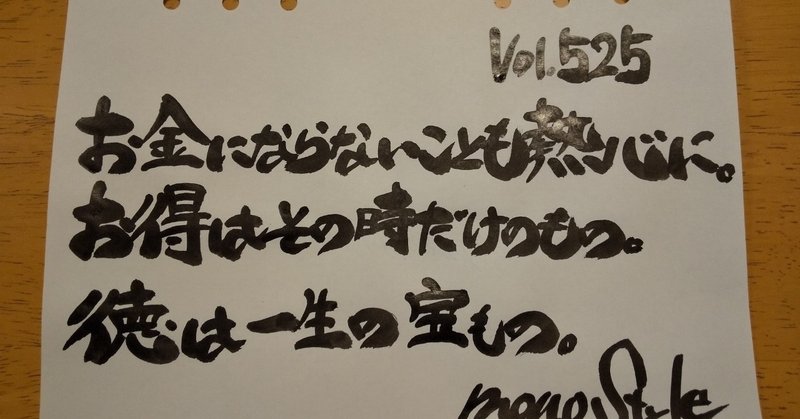 Vol.525
お金にならないことも熱心に。
お得はその時だけのもの。
徳は一生の宝もの。
mono Style